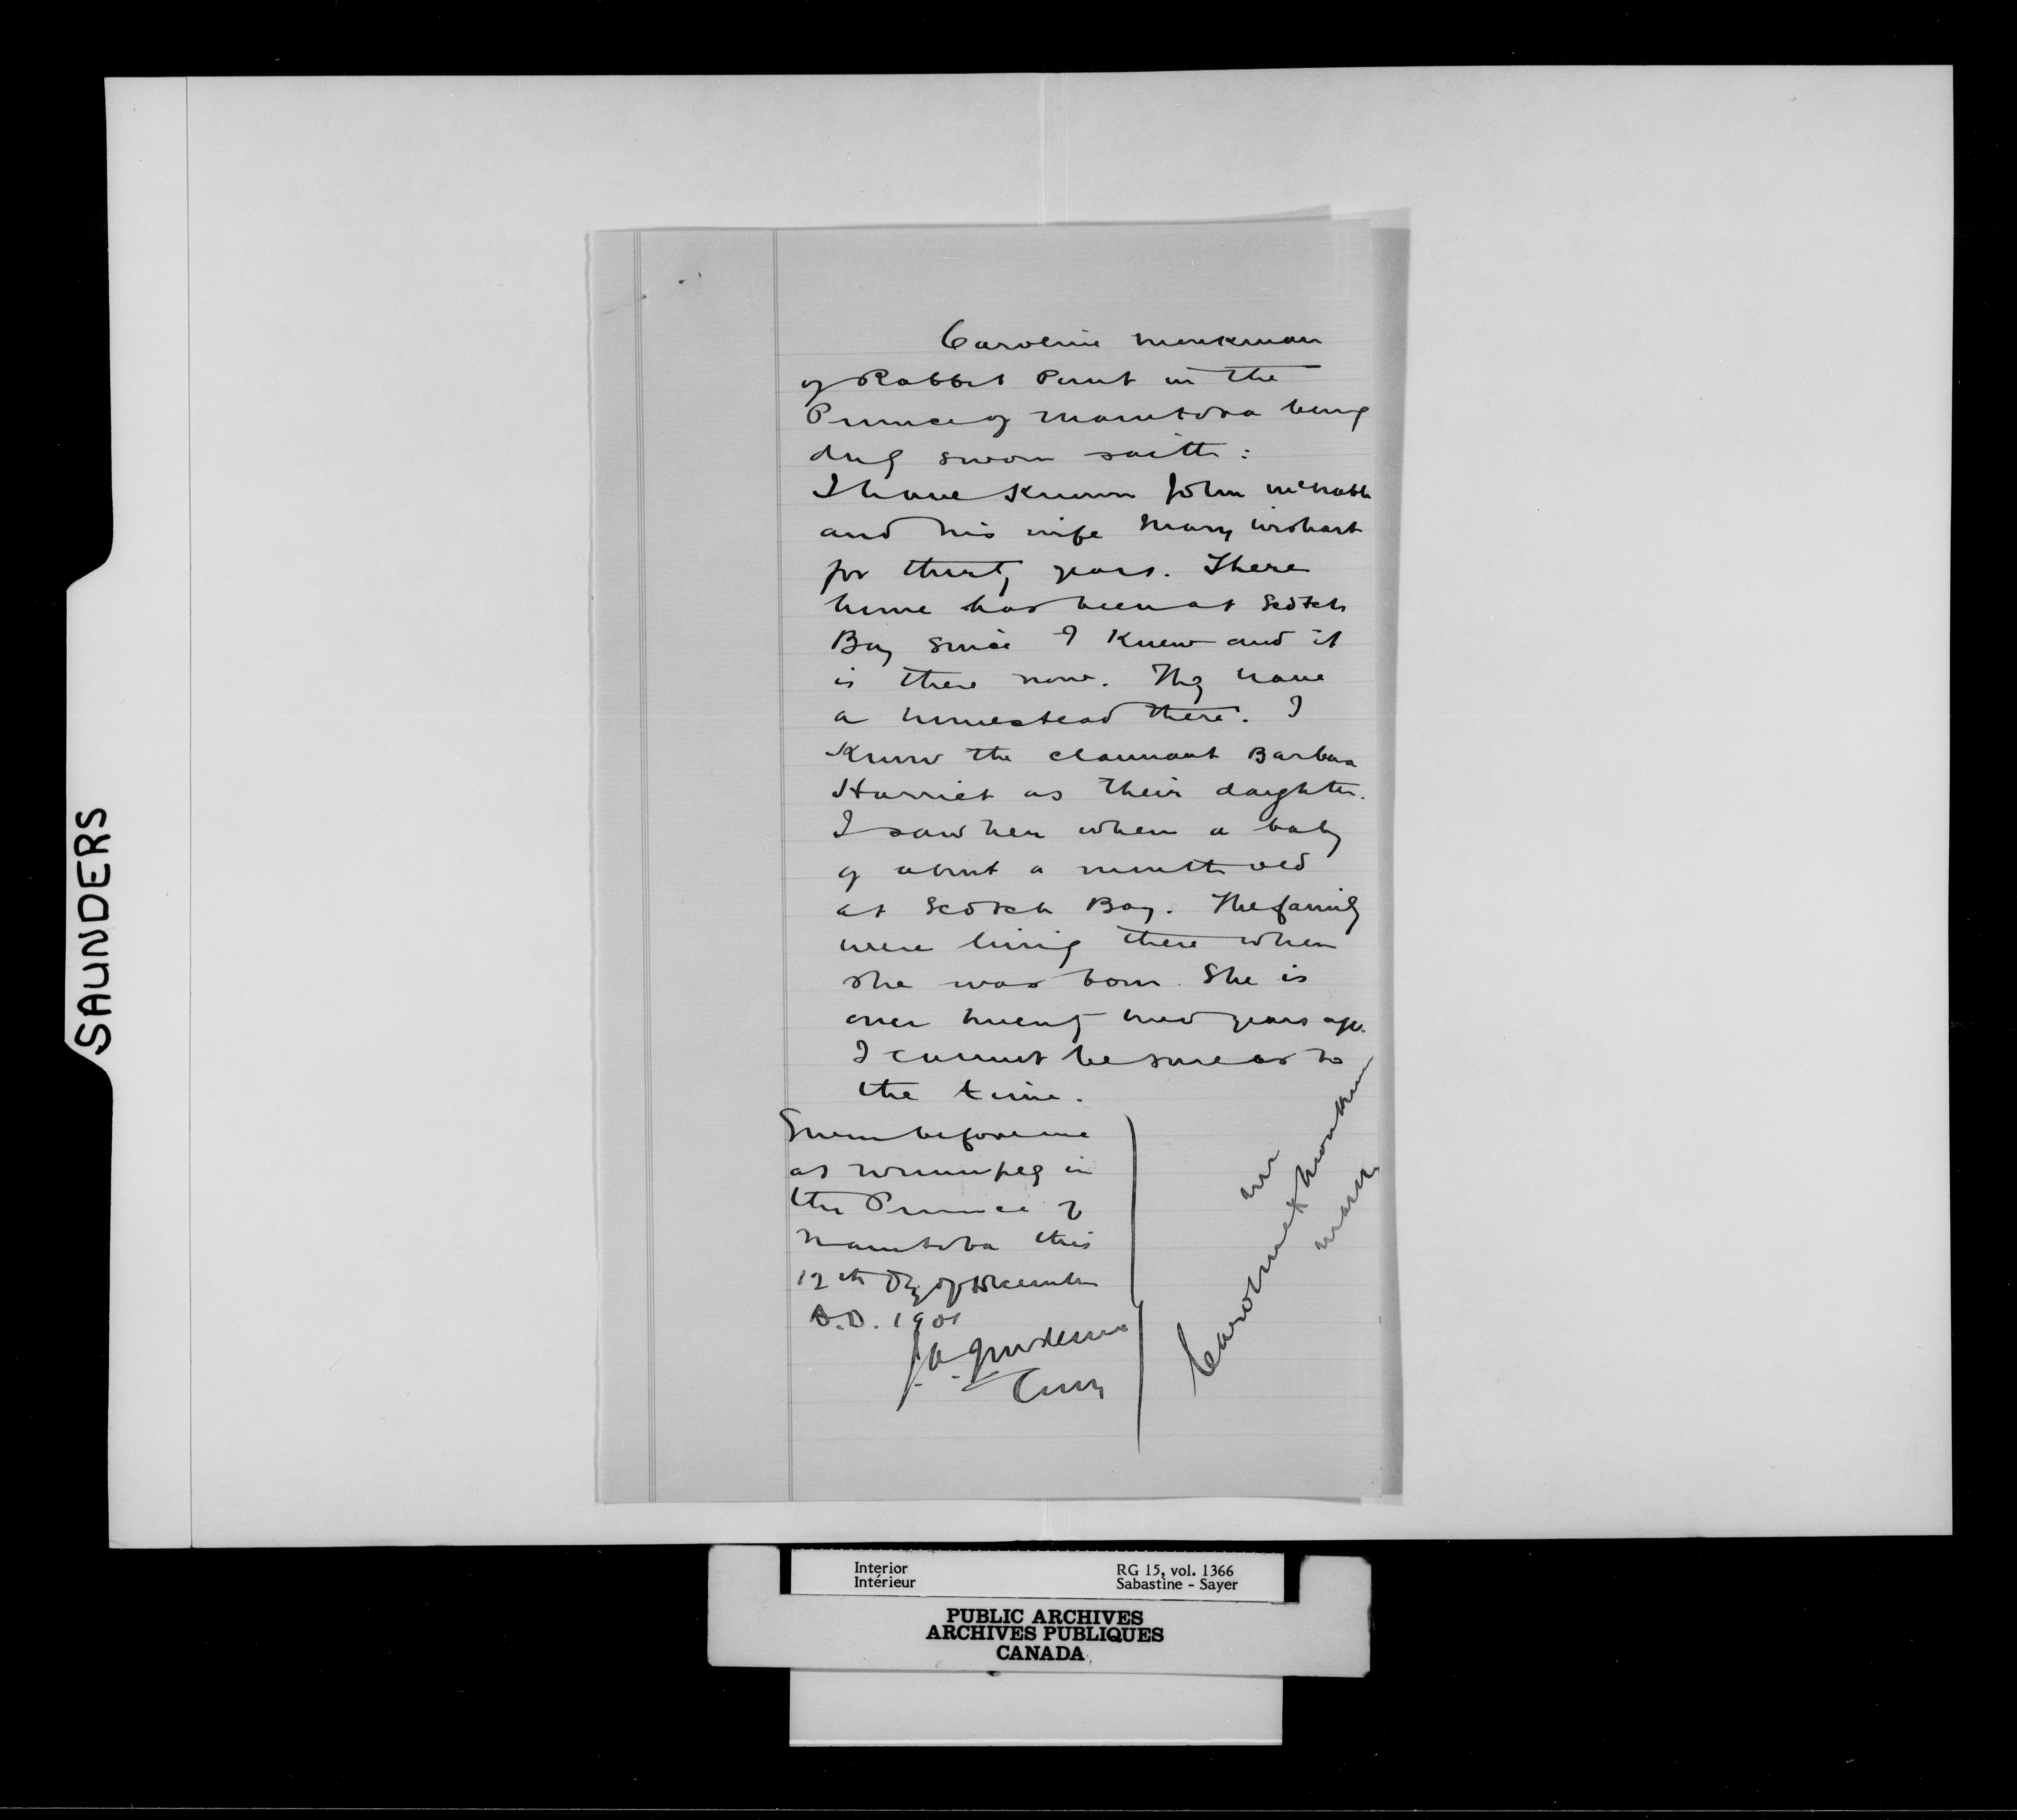 SAUNDERS
Caroline Monkman
of Rabbit Point in the
Province of Manitoba being
duly sworn saith:
I have known John McNabb
and his wife Mary Wishart
for thirty years. There
home has been at Scotch
Bay since I knew and it
is there now. They have
a homestead there. I
know the claimant Barbara
Harriet as their daughter.
I saw her when a baby
of about a month old
at Scotch Bay. The family
were living there when
she was born. She is
over twenty two years ago.
I cannot be sure as to
the time.
Sworn before me
at Winnipeg in
the Province of
Manitoba this
12th Day of December
A.D. 1901
J.A.
Com
her
Caroline X Monkman
mark
Interior
Intérieur
RG 15, vol. 1366
Sabastine - Sayer
PUBLIC ARCHIVES
ARCHIVES PUBLIQUES
CANADA